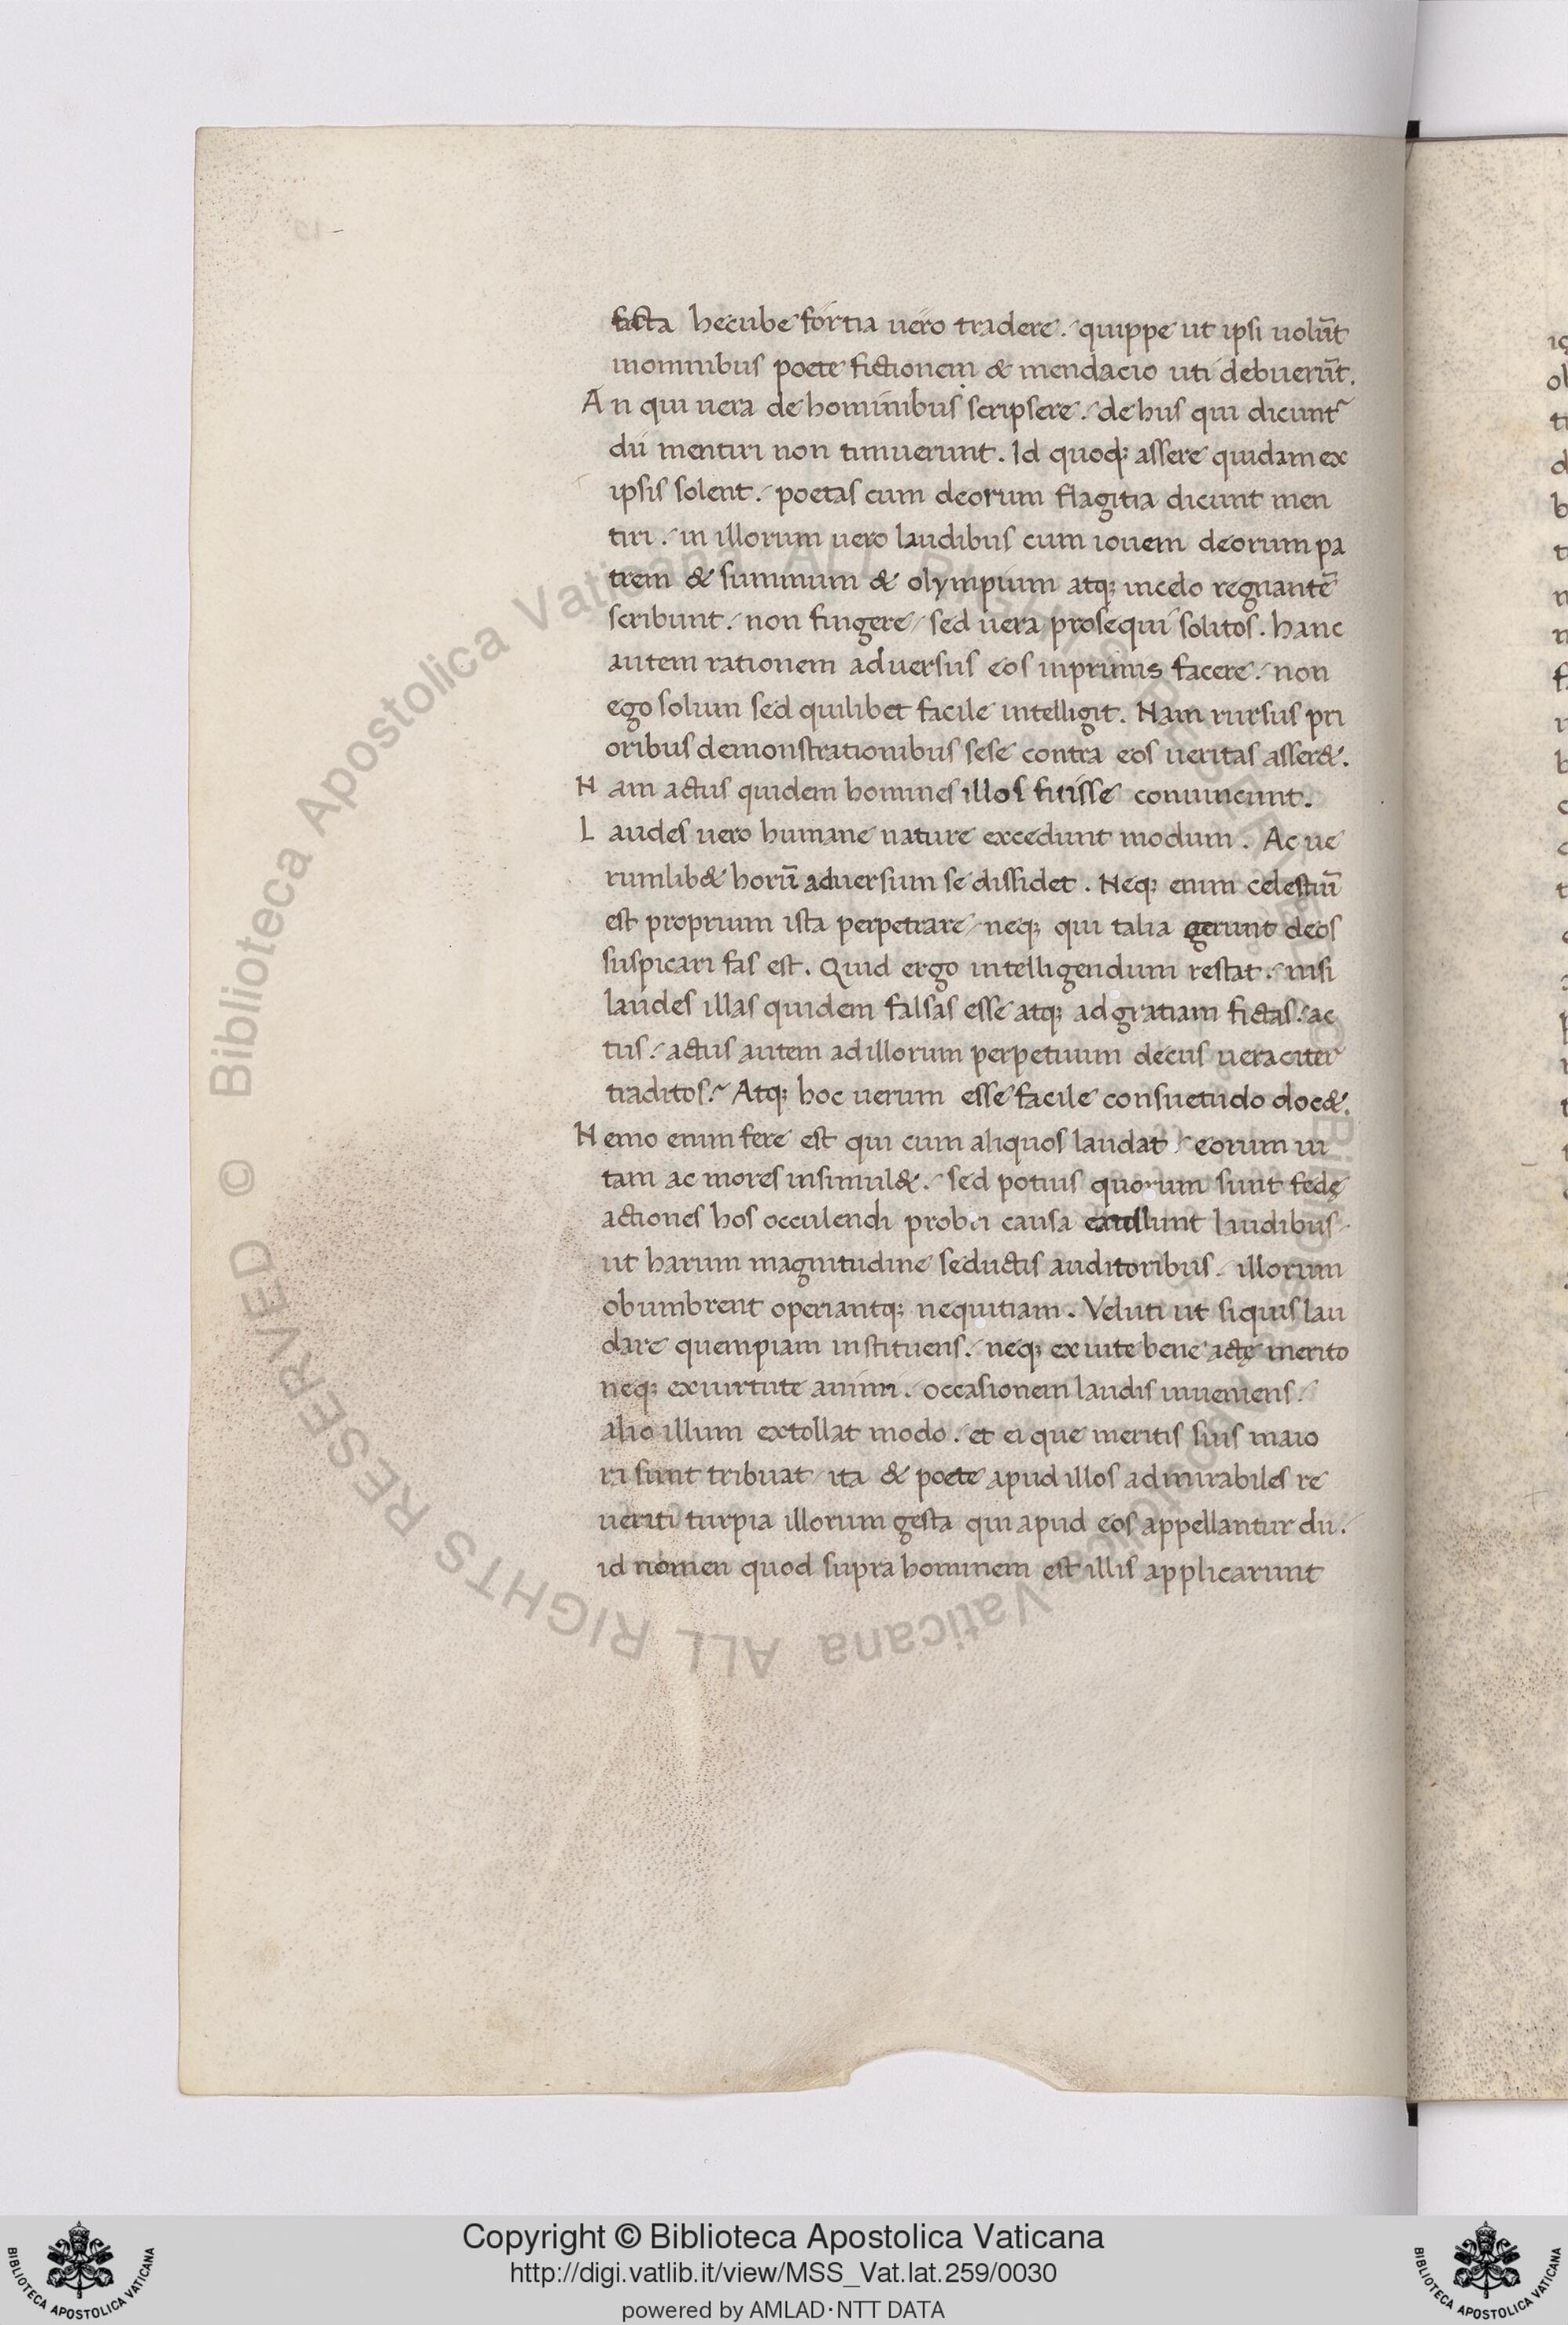 facta hecube fortia uero tradere. quippe ut ipsi uolūt
inomnibus poete fictionem & mendacio uti debuerūt.
An qui uera de hominibus scripsere. de his qui dicunt᷑
dii mentiri non timuerunt. Id quoq; assere quidam ex
ipsis solent. poetas cum deorum flagitia dicunt men
tiri. in illorum uero laudibus cum iouem deorum pa
trem & summum & olympium atq; incelo regnantē
scribunt. non fingere sed uera prosequi solitos. hanc
autem rationem aduersus eos inprimis facere. non
ego solum sed quilibet facile intelligit. Nam rursus pri
oribus demonstrationibus sese contra eos ueritas asser&.
Nam actus quidem homines illos fuisse conuincunt.
Laudes uero humane nature excedunt modum. Ac ue
rumlib& horū aduersum se dissidet. Neq; enim celestiū
est proprium ista perpetrare neq; qui talia gerunt deos
suspicari fas est. Quid ergo intelligendum restat. nisi
laudes illas quidem falsas esse atq; ad gratiam fictas. ac
tus. actus autem ad illorum perpetuum decus ueraciter
traditos. Atq; hoc uerum esse facile consuetudo doc&.
Nemo enim fere est qui cum aliquos laudat eorum ui
tam ac mores insimul&. sed potius quorum sunt fedę
actiones hos occulendi probri causa laudibus
ut harum magnitudine seductis auditoribus. illorum
obumbrent operiantq; nequitiam. Veluti ut siquis lau
dare quempiam instituens. neq; ex uite bene actę merito
neq; ex uirtute animi. occasionem laudis inueniens.
alio illum extollat modo. et ei que meritis suis maio
ra sunt tribuat ita & poete apud illos admirabiles re
ueriti turpia illorum gesta qui apud eos appellantur dii.
id nomen quod supra hominem est illis applicarunt
Copyright © Biblioteca Apostolica Vaticana
http://digi.vatlib.it/view/MSS_Vat.lat.259/0030
powered by AMLAD·NTT DATA
BIBLIOTECA APOSTOLICA VATICANA
BIBLIOTECA APOSTOLICA VATICANA
© Biblioteca Apostolica Vaticana ALL RIGHTS RESERVED
© Biblioteca Apostolica Vaticana ALL RIGHTS RESERVED